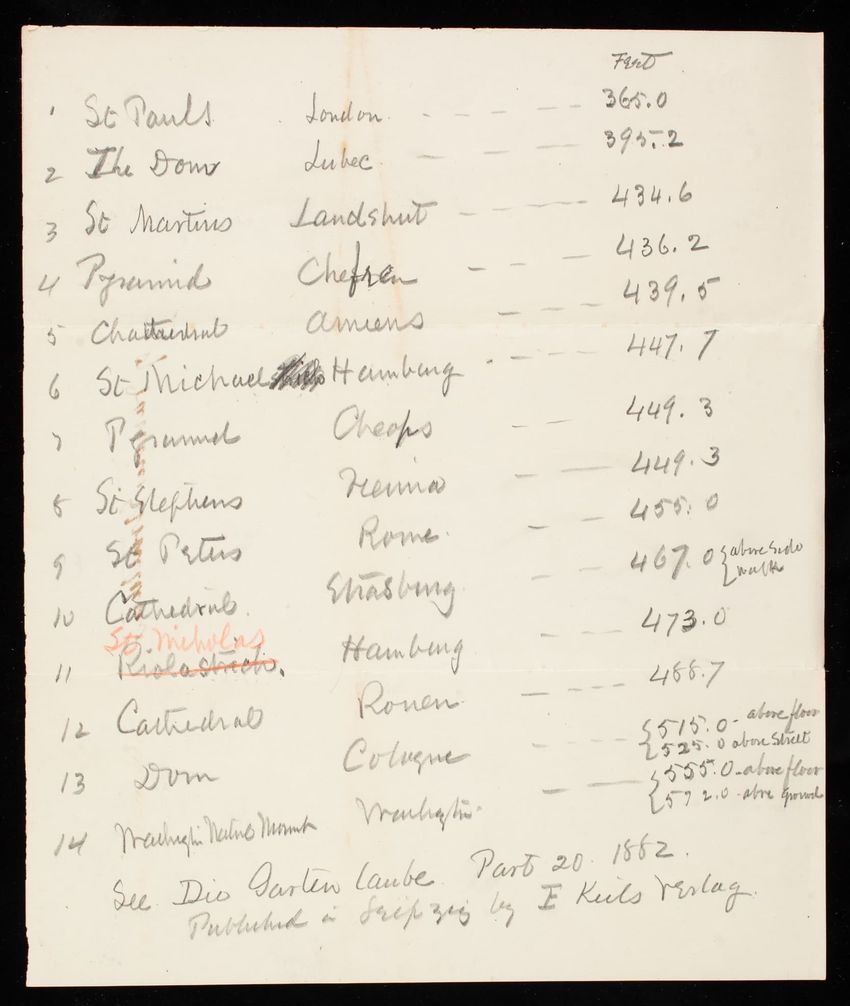 Feet
1 St Pauls London 365.0
2 The Dom Lubec 395.2
3 St Martins Landshut 434.6
4 Pyramid Chefren 436.2
5 Chathedral Amiens 439.5
6 St Michael Hamburg 447.7
7 Pyramid Cheops 449.3
8 St Stephens Vienna 449.3
9 St Peters Rome 455.0
10 Cathedral Strasburg 467.0 { above side
walk
St Nicholas
11 Hamburg 473.0
12 Cathedral Rouen 488.7
13 Dom Cologne { 515.0 - above floor
525.0 above Street
14 Washington Natnl Monmt Washington { 555.0 - above floor
572.0 - above ground
See Die Garten laube Part 20. 1882.
Published in Leipzig by E Keils Verlag.